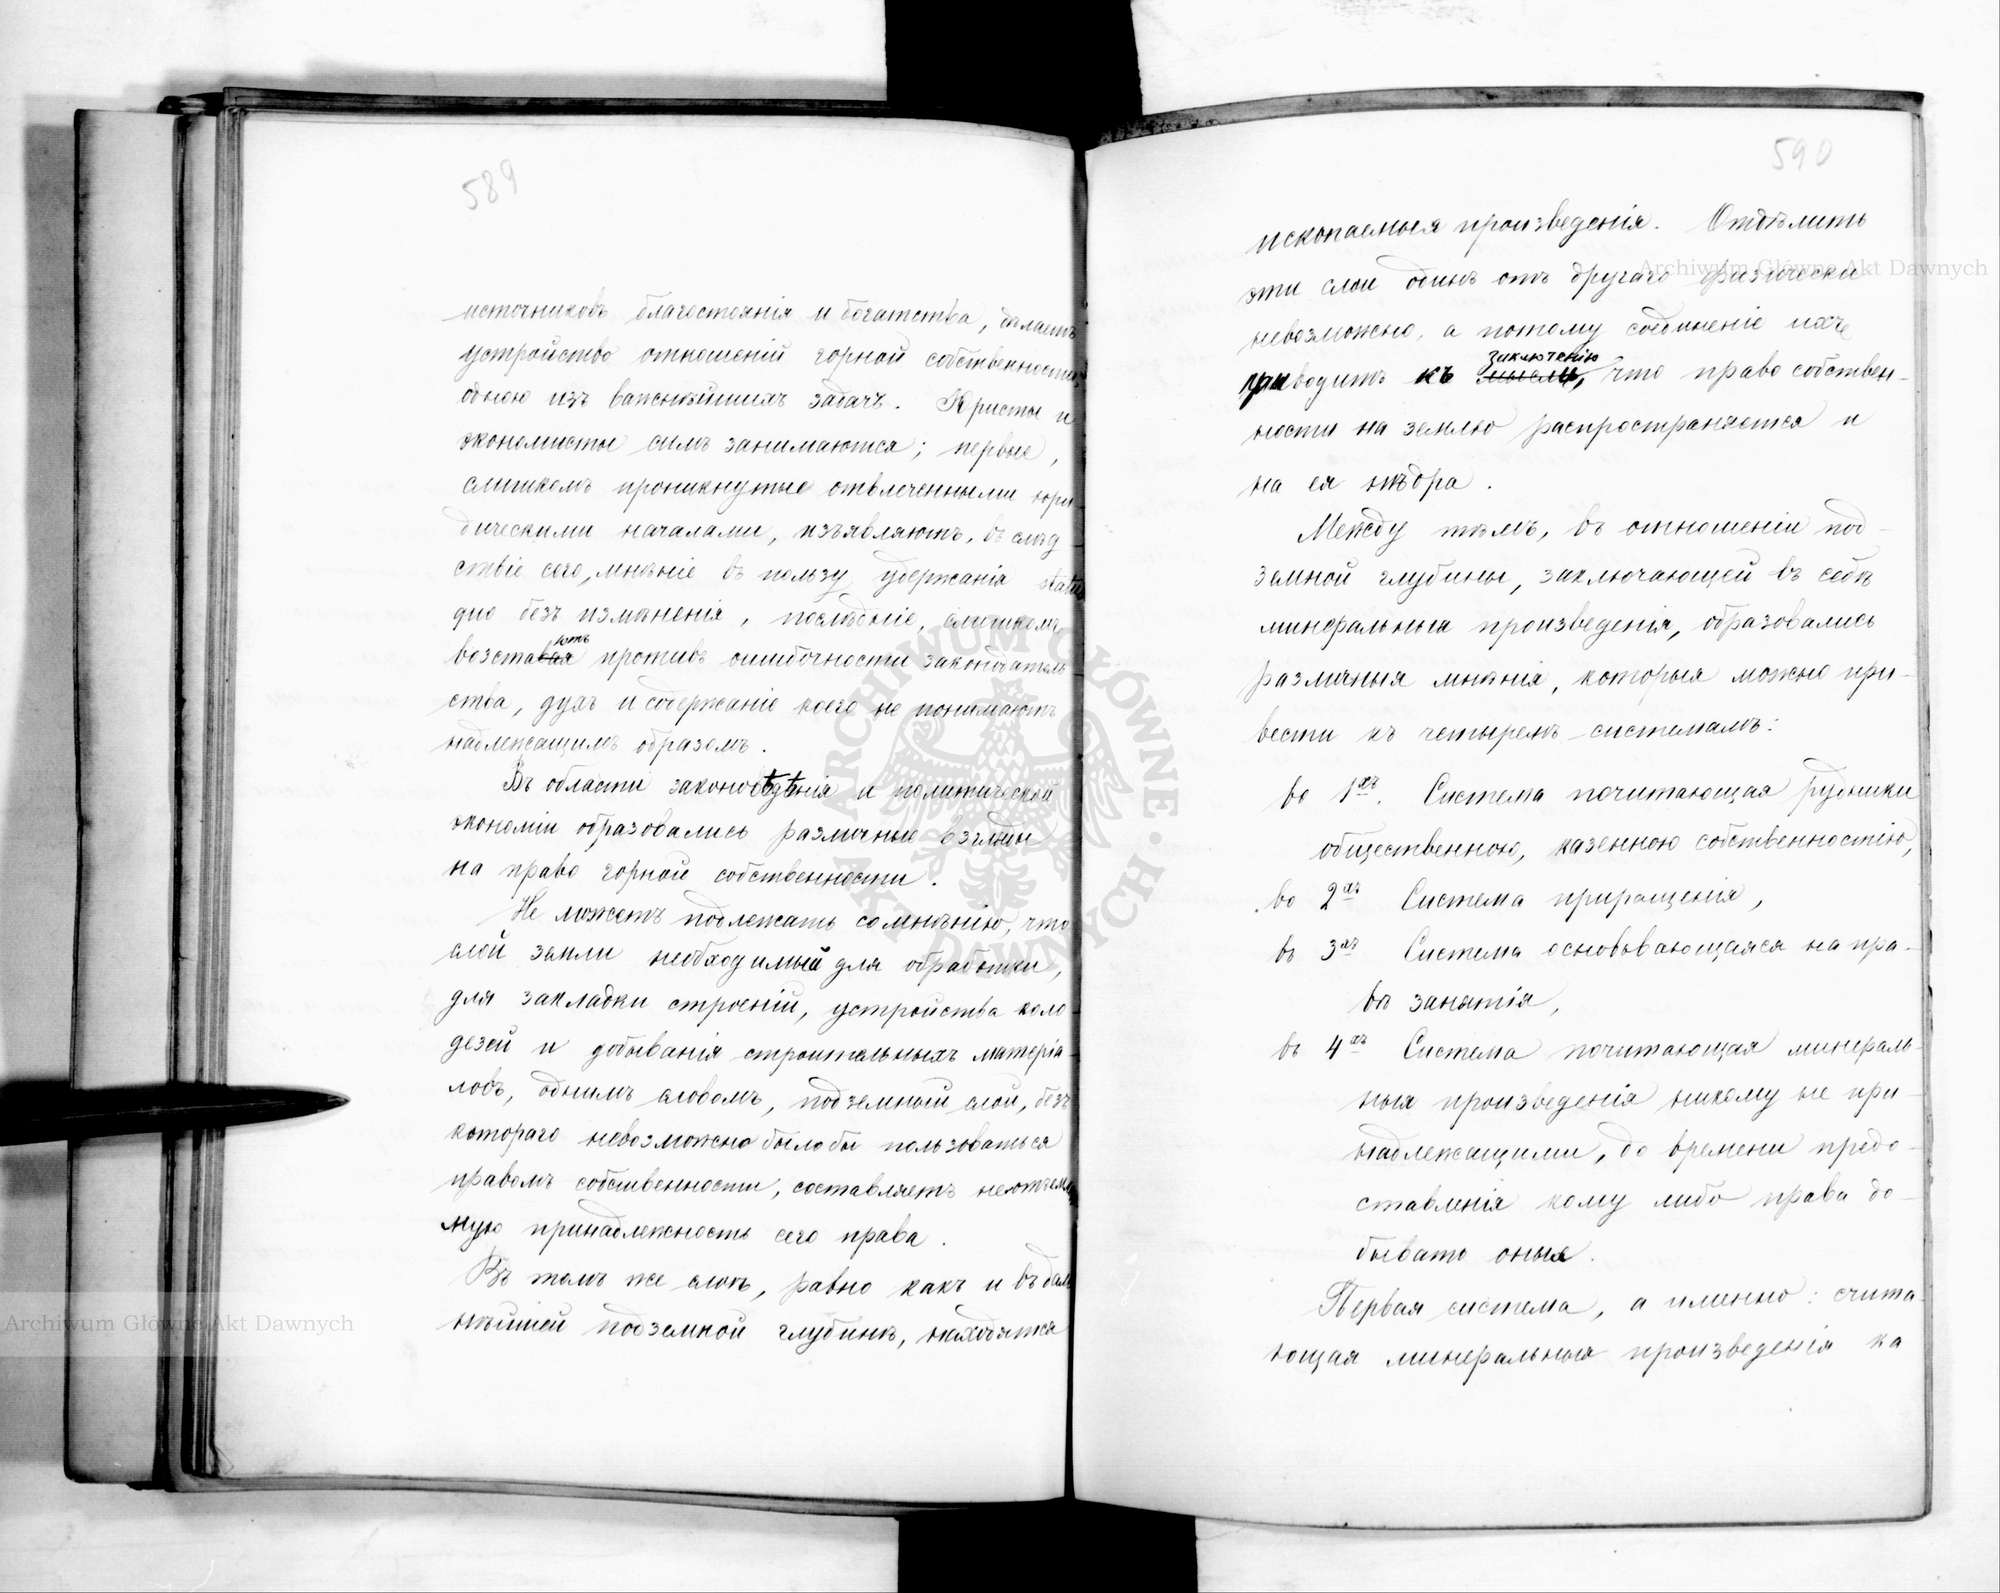 589
источниковъ благостоянія и богатства, дѣлаетъ
устройство отношеній горной собственности
одною изъ важнѣйшихъ задачъ. Юристы и
экономисты симъ занимаются; первые,
слишкомъ проникнутые отвлеченными юри
дическими началами, изъявляютъ, въ слѣд
ствіе сего, мнѣніе въ пользу удержанія status
quo безъ измѣненія, послѣдніе, слишкомъ
ютъ
возставая противъ ошибочности законодатель
ства, духъ и содержаніе коего не понимаютъ
надлежащимъ образомъ.
Въ области законовѣдѣнія и политической
экономіи образовались различные взгляды
на право горной собственности.
Не можетъ подлежать сомнѣнію, что
слой земли необходимый для обработки,
для закладки строеній, устройства коло
дезей и добыванія строительныхъ матеріа
ловъ, однимъ словомъ, подземный слой, безъ
котораго невозможно было бы пользоваться
правомъ собственности, составляетъ неотъемле
мую принадлежность сего права.
Въ томъ же слоѣ, равно какъ и въ даль
нѣйшей подземной глубинѣ, находятся
590
ископаемыя произведенія. Отдѣлить
эти слои одинъ отъ другаго физически
невозможно, а потому соединеніе ихъ
заключенію
приводитъ къ мысли, что право собствен-
ности на землю распространяется и
на ея нѣдра.
Между тѣмъ, въ отношеніи под-
земной глубины, заключающей въ себѣ
минеральныя произведенія, образовались
различныя мнѣнія, которыя можно при-
вести къ четыремъ системамъ:
во 1хъ. Система почитающая рудники
общественною, казенною собственностію,
во 2хъ Система приращенія,
въ 3хъ Система основывающаяся на пра-
вѣ занятія,
въ 4хъ Система почитающая минераль-
ныя произведенія никому не при-
надлежащими, до времени предо-
ставленія кому либо права до-
бывать оныя.
Первая система, а именно: счита-
ющая минеральныя произведенія ка
Archiwum Główne Akt Dawnych
Archiwum Główne Akt Dawnych
ARCHIWUM GŁÓWNE AKT DAWNYCH